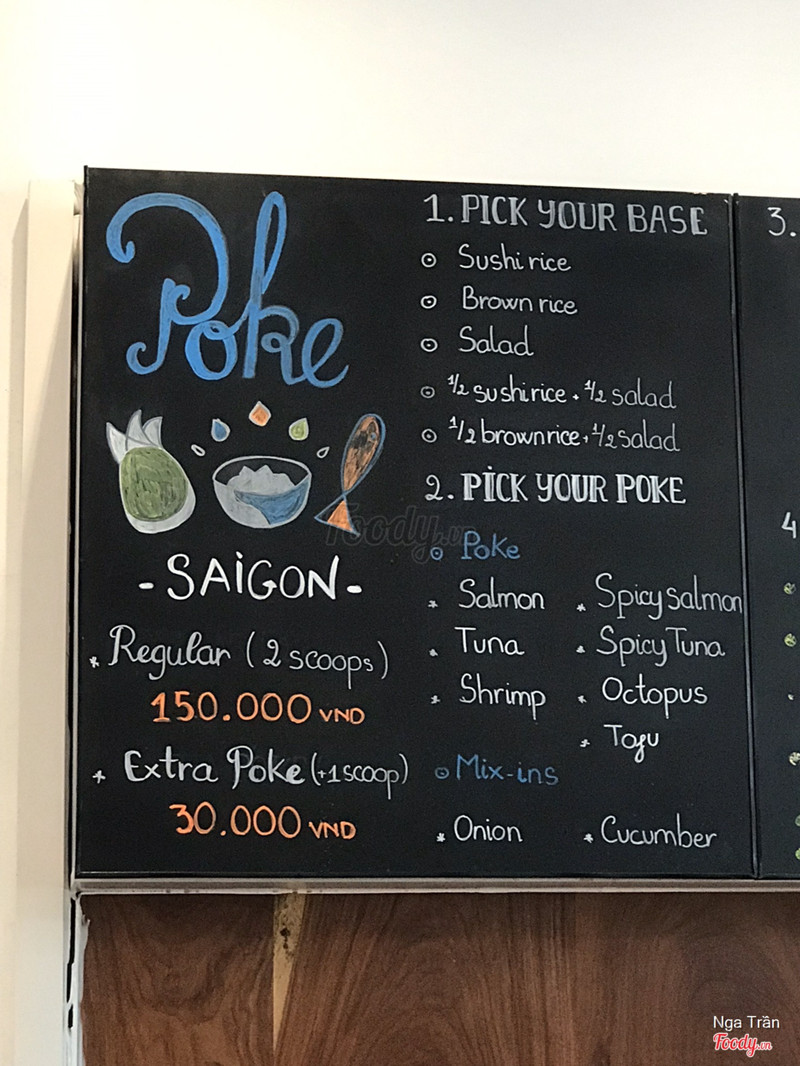 Poke
-SAiGON-
* Regular (2 scoops)
150.000 VND
* Extra Poke (+1 scoop)
30.000 VND
1. PICK YOUR BASE
Sushi rice
Brown rice
Salad
1/2 sushi rice + 1/2 salad
1/2 brown rice + 1/2 salad
2. PiCK YOUR POKE
Poke
* Salmon
* Spicy salmon
* Tuna
* Spicy Tuna
* Shrimp
* Octopus
* Tofu
Mix-ins
* Onion
* Cucumber
3.
4
Foody.vn
Nga Trần
Foody.vn